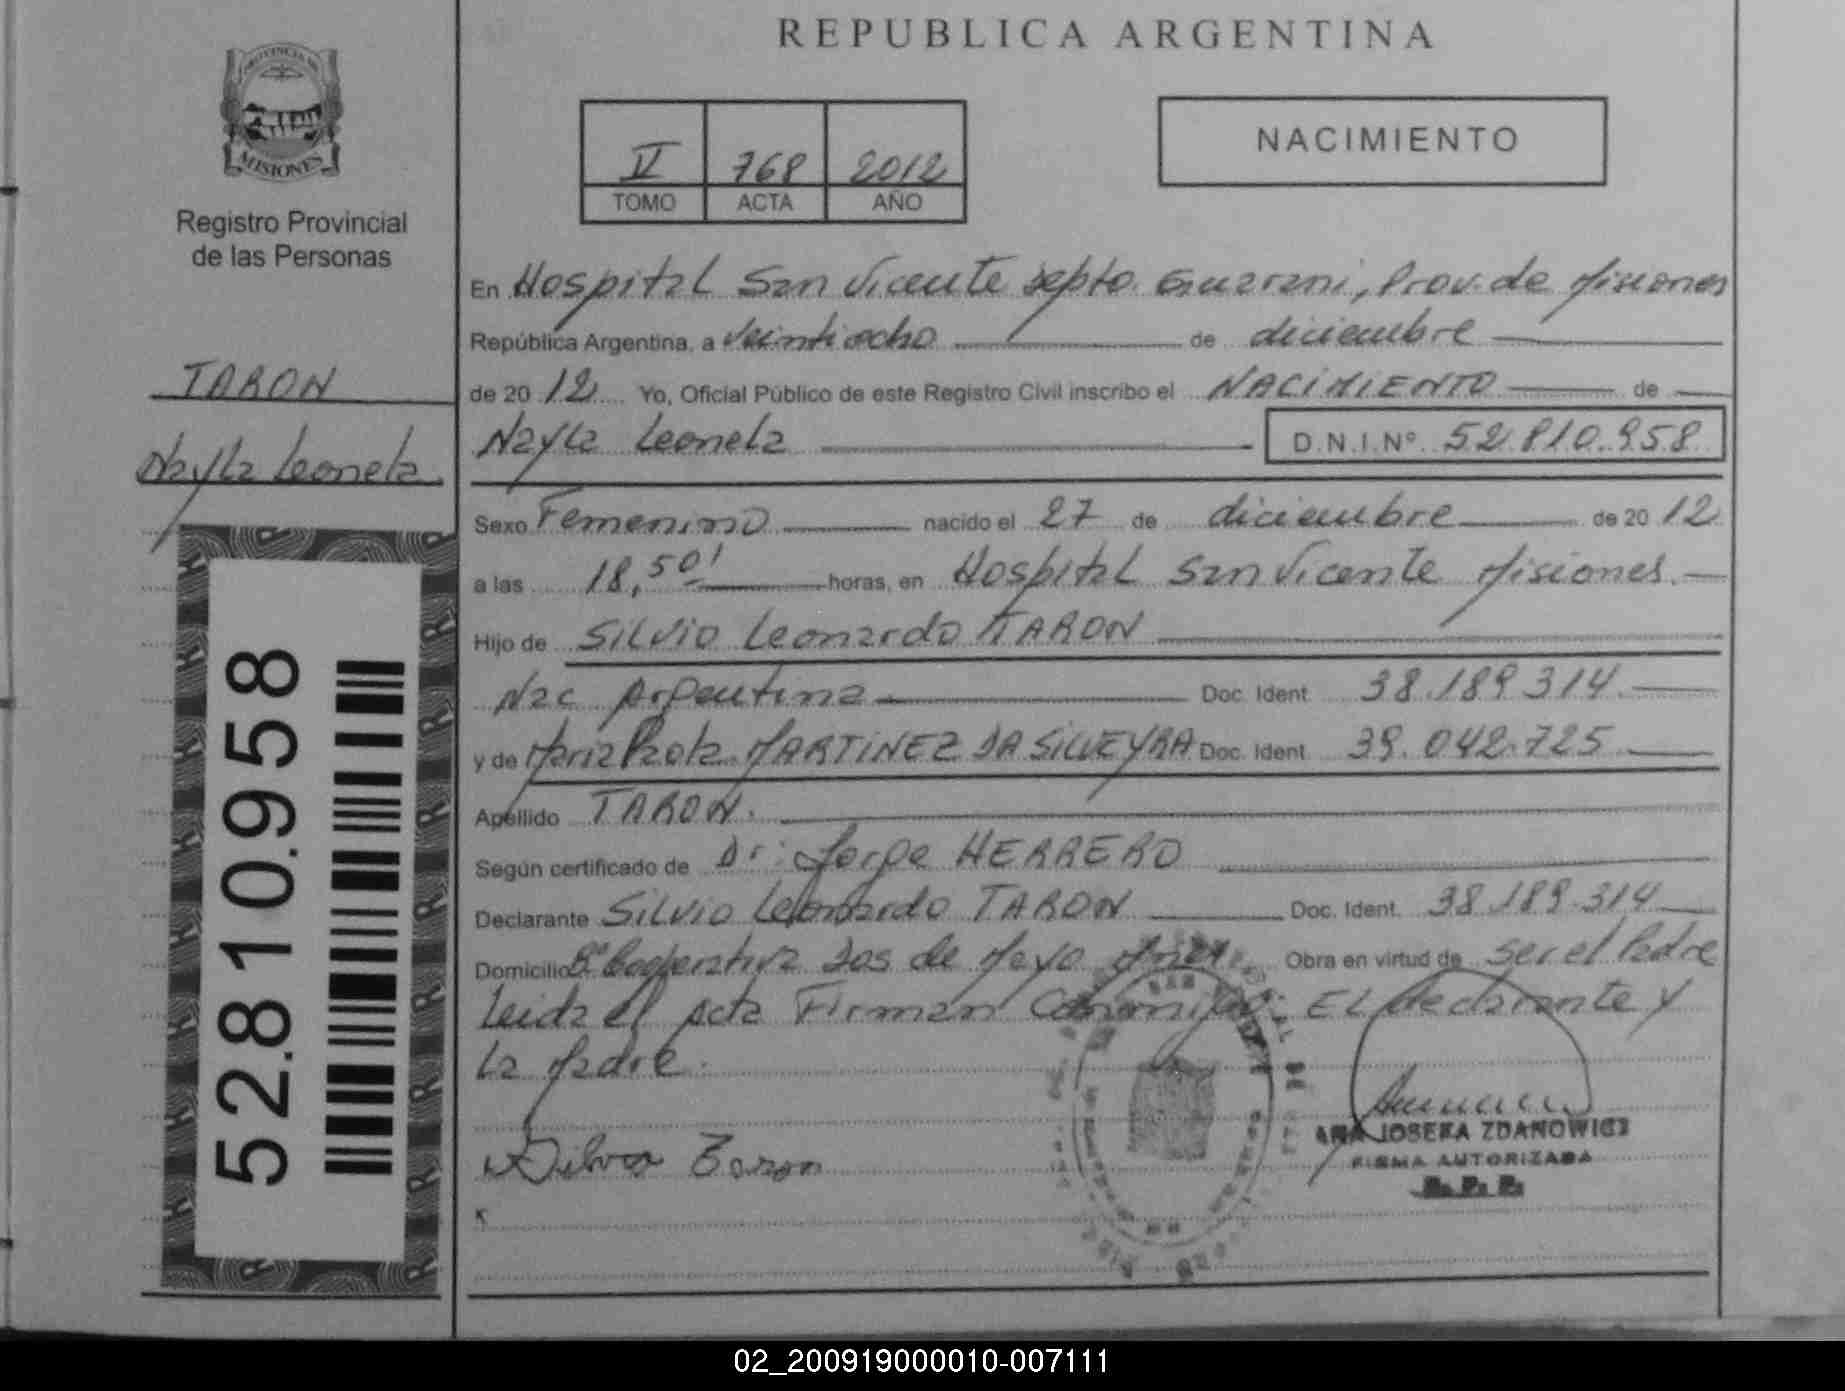 REPUBLICA ARGENTINA
PROVINCIA DE
MISIONES
Registro Provincial
de las Personas
IV 768 2012
TOMO ACTA AÑO
NACIMIENTO
En Hospital San Vicente Depto. Guarani, Prov. de Misiones
República Argentina, a Veintiocho de diciembre
de 20 12 Yo, Oficial Público de este Registro Civil inscribo el NACIMIENTO de
Nayla Leonela D.N.I.Nº 52.810.958
TARON
Nayla Leonela
Sexo Femenino nacido el 27 de diciembre de 20 12
a las 18,50' horas, en Hospital San Vicente Misiones.
Hijo de Silvio Leonardo TARON
Nac Argentina Doc. Ident. 38.189.314
y de Maria Paola MARTINEZ DA SILVEYRA Doc. Ident. 39.042.725
Apellido TARON.
Según certificado de Dr: Jorge HERRERO
Declarante Silvio Leonardo TARON Doc. Ident. 38.189.314
Domicilio Bº Cooperativa Dos de Mayo Obra en virtud de ser el Padre
Leida el acta Firman Conmigo: El declarante y
La Madre.
Silvio Taron
ANA JOSEFA ZDANOWICZ
FIRMA AUTORIZADA
R. P. P.
52.810.958
02_200919000010-007111